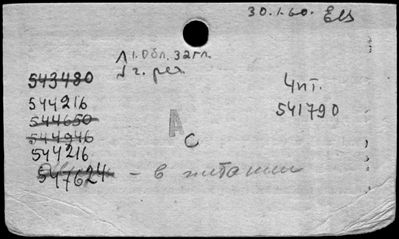 30.1.60.
1. Обл. 32 гл.
г. рех
543480
544216
544650
544946
544216
547624 - в читании
4 пт.
541790
A
C